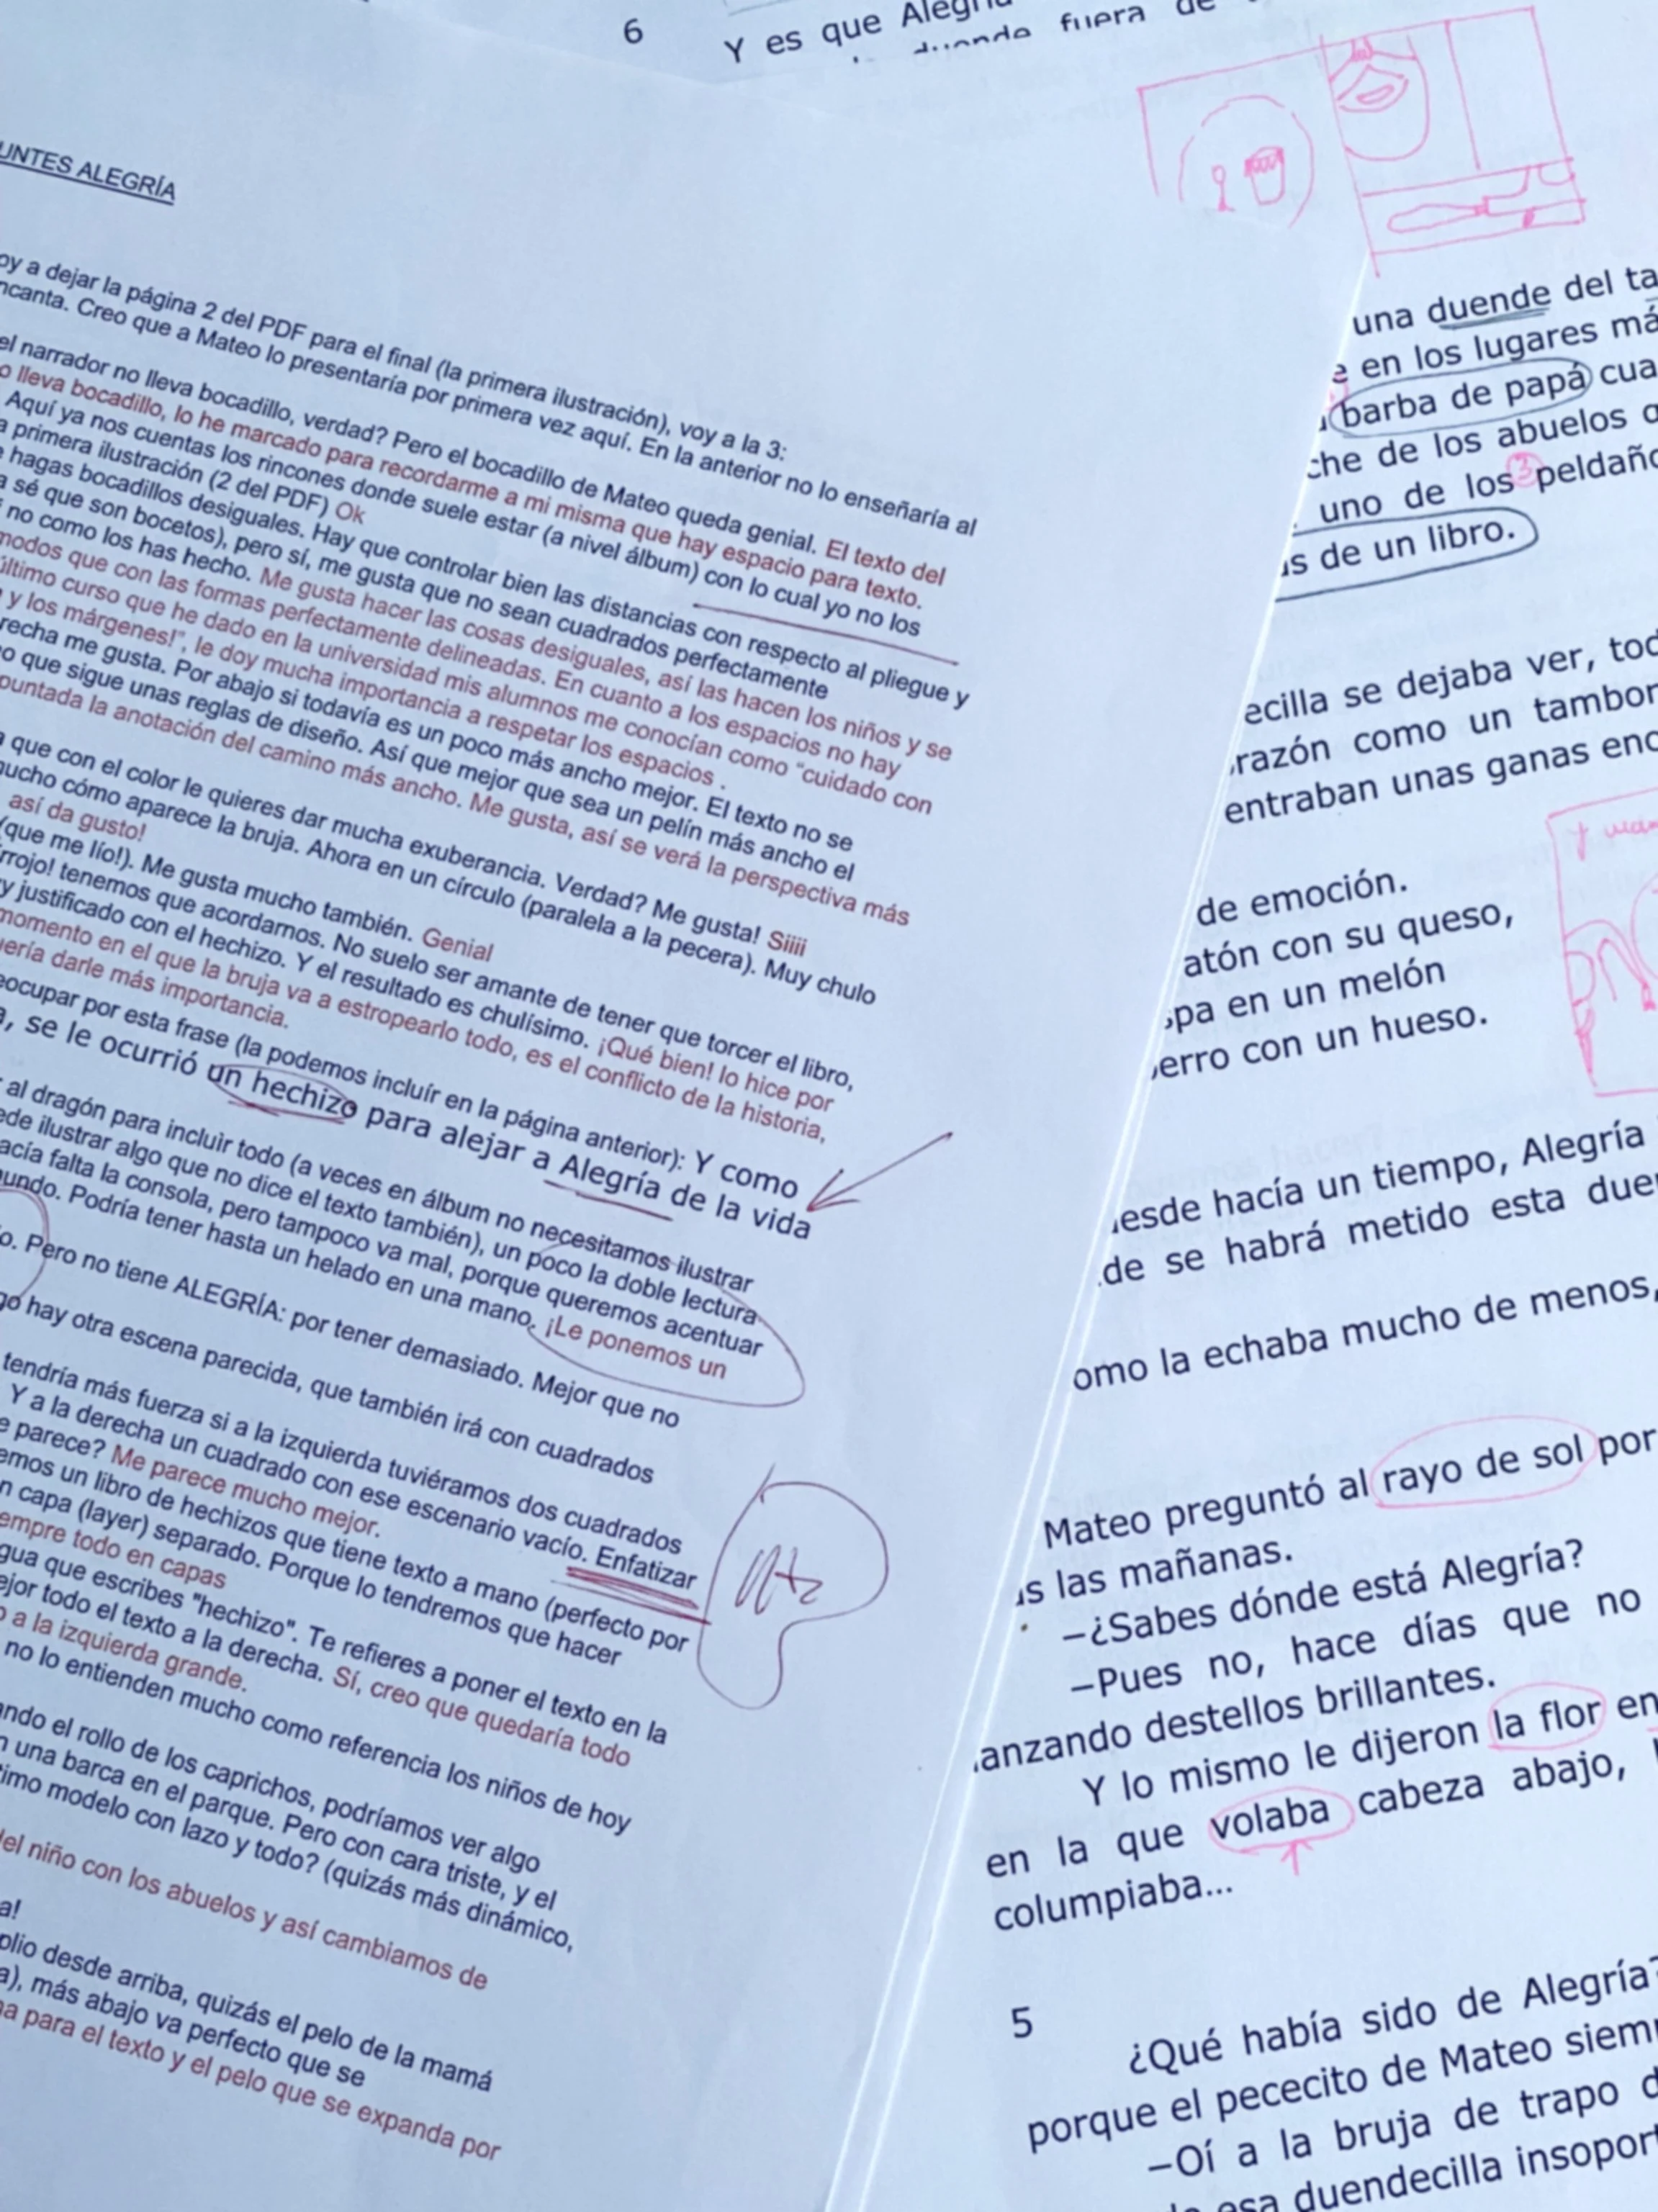 6
Y es que
duende fuera de
UNTES ALEGRÍA
oy a dejar la página 2 del PDF para el final (la primera ilustración), voy a la 3:
ncanta. Creo que a Mateo lo presentaría por primera vez aquí. En la anterior no lo enseñaría al
el narrador no lleva bocadillo, verdad? Pero el bocadillo de Mateo queda genial. El texto del
o lleva bocadillo, lo he marcado para recordarme a mi misma que hay espacio para texto.
Aquí ya nos cuentas los rincones donde suele estar (a nivel álbum) con lo cual yo no los
a primera ilustración (2 del PDF) Ok
e hagas bocadillos desiguales. Hay que controlar bien las distancias con respecto al pliegue y
a sé que son bocetos), pero sí, me gusta que no sean cuadrados perfectamente
no como los has hecho. Me gusta hacer las cosas desiguales, así las hacen los niños y se
modos que con las formas perfectamente delineadas. En cuanto a los espacios no hay
último curso que he dado en la universidad mis alumnos me conocían como "cuidado con
y los márgenes!", le doy mucha importancia a respetar los espacios .
recha me gusta. Por abajo si todavía es un poco más ancho mejor. El texto no se
o que sigue unas reglas de diseño. Así que mejor que sea un pelín más ancho el
puntada la anotación del camino más ancho. Me gusta, así se verá la perspectiva más
a que con el color le quieres dar mucha exuberancia. Verdad? Me gusta! Siiii
mucho cómo aparece la bruja. Ahora en un círculo (paralela a la pecera). Muy chulo
así da gusto!
(que me lío!). Me gusta mucho también. Genial
rrojo! tenemos que acordarnos. No suelo ser amante de tener que torcer el libro,
y justificado con el hechizo. Y el resultado es chulísimo. ¡Qué bien! lo hice por
momento en el que la bruja va a estropearlo todo, es el conflicto de la historia,
uería darle más importancia.
eocupar por esta frase (la podemos incluír en la página anterior): Y como
a, se le ocurrió un hechizo para alejar a Alegría de la vida
al dragón para incluìr todo (a veces en álbum no necesitamos ilustrar
ede ilustrar algo que no dice el texto también), un poco la doble lectura
acía falta la consola, pero tampoco va mal, porque queremos acentuar
undo. Podría tener hasta un helado en una mano. ¡Le ponemos un
o. Pero no tiene ALEGRÍA: por tener demasiado. Mejor que no
go hay otra escena parecida, que también irá con cuadrados
tendría más fuerza si a la izquierda tuviéramos dos cuadrados
Y a la derecha un cuadrado con ese escenario vacío. Enfatizar
e parece? Me parece mucho mejor.
emos un libro de hechizos que tiene texto a mano (perfecto por
n capa (layer) separado. Porque lo tendremos que hacer
empre todo en capas
gua que escribes "hechizo". Te refieres a poner el texto en la
ejor todo el texto a la derecha. Sí, creo que quedaría todo
o a la izquierda grande.
no lo entienden mucho como referencia los niños de hoy
ando el rollo de los caprichos, podríamos ver algo
n una barca en el parque. Pero con cara triste, y el
timo modelo con lazo y todo? (quizás más dinámico,
del niño con los abuelos y así cambiamos de
a!
plio desde arriba, quizás el pelo de la mamá
a), más abajo va perfecto que se
na para el texto y el pelo que se expanda por
una duende del ta
e en los lugares má
barba de papá cua
che de los abuelos o
uno de los 3 peldaño
as de un libro.
ecilla se dejaba ver, tod
razón como un tambor
entraban unas ganas eno
de emoción.
atón con su queso,
spa en un melón
erro con un hueso.
esde hacía un tiempo, Alegría
de se habrá metido esta due
omo la echaba mucho de menos,
Mateo preguntó al rayo de sol por
as las mañanas.
–¿Sabes dónde está Alegría?
–Pues no, hace días que no
lanzando destellos brillantes.
Y lo mismo le dijeron la flor en
en la que volaba cabeza abajo,
columpiaba...
5
¿Qué había sido de Alegría?
porque el pececito de Mateo siem
–Oí a la bruja de trapo d
esa duendecilla insoport